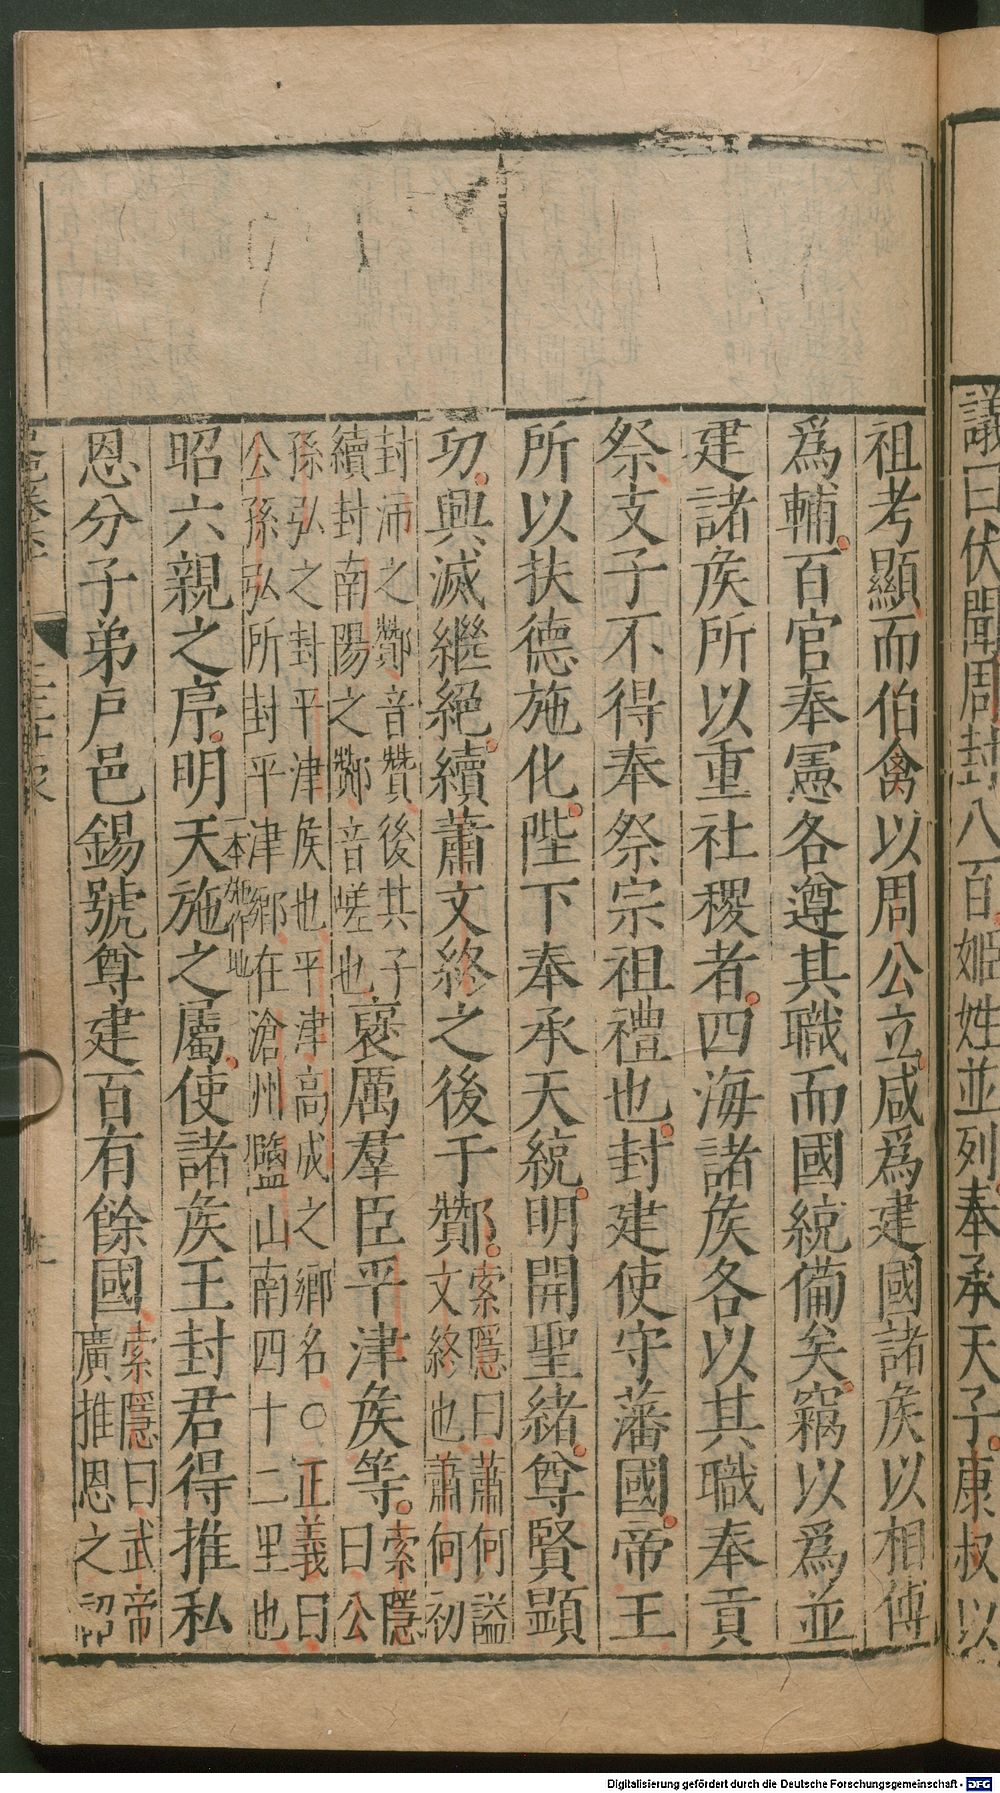 議曰伏聞周封八百姬姓並列奉承天子康叔以
祖考顯而伯禽以周公立咸爲建國諸矦以相傅
爲輔百官奉憲各遵其職而國統備矣竊以爲並
建諸矦所以重社稷者四海諸矦各以其職奉貢
祭支子不得奉祭宗祖禮也封建使守藩國帝王
所以扶德施化陛下奉承天統明開聖緒尊賢顯
功興滅繼絕續蕭文終之後于酇索隱曰蕭何謚
文終也蕭何初
封沛之酇音贊後其子
續封南陽之酇音嵯也褒厲羣臣平津矦等索隱
曰公
孫弘之封平津矦也平津高成之鄉名○正義曰
公孫弘所封平津鄉在滄州鹽山南四十二里也
昭六親之序明天施之屬一本施作地使諸矦王封君得推私
恩分子弟戶邑錫號尊建百有餘國索隱曰武帝
廣推恩之詔
三王世家
Digitalisierung gefördert durch die Deutsche Forschungsgemeinschaft - DFG